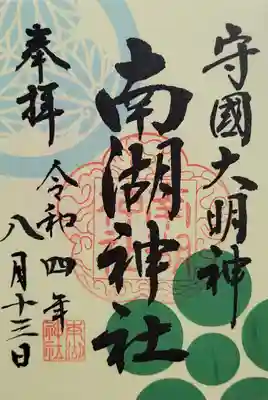 守國大明神
南湖神社
奉拝
令和四年
八月十三日